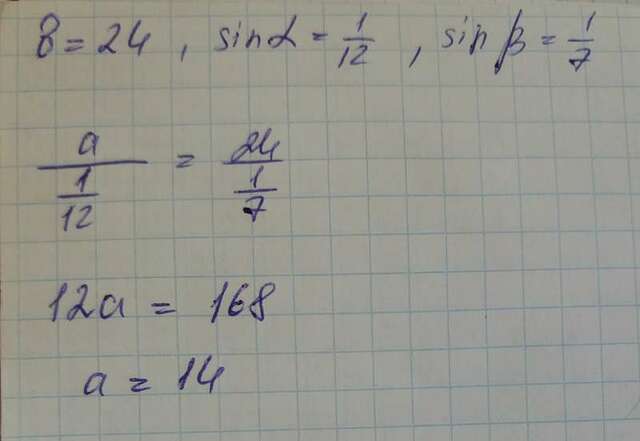 в = 24 , sin α = 1/12 , sin β = 1/7
a/(1/12) = 24/(1/7)
12a = 168
a = 14